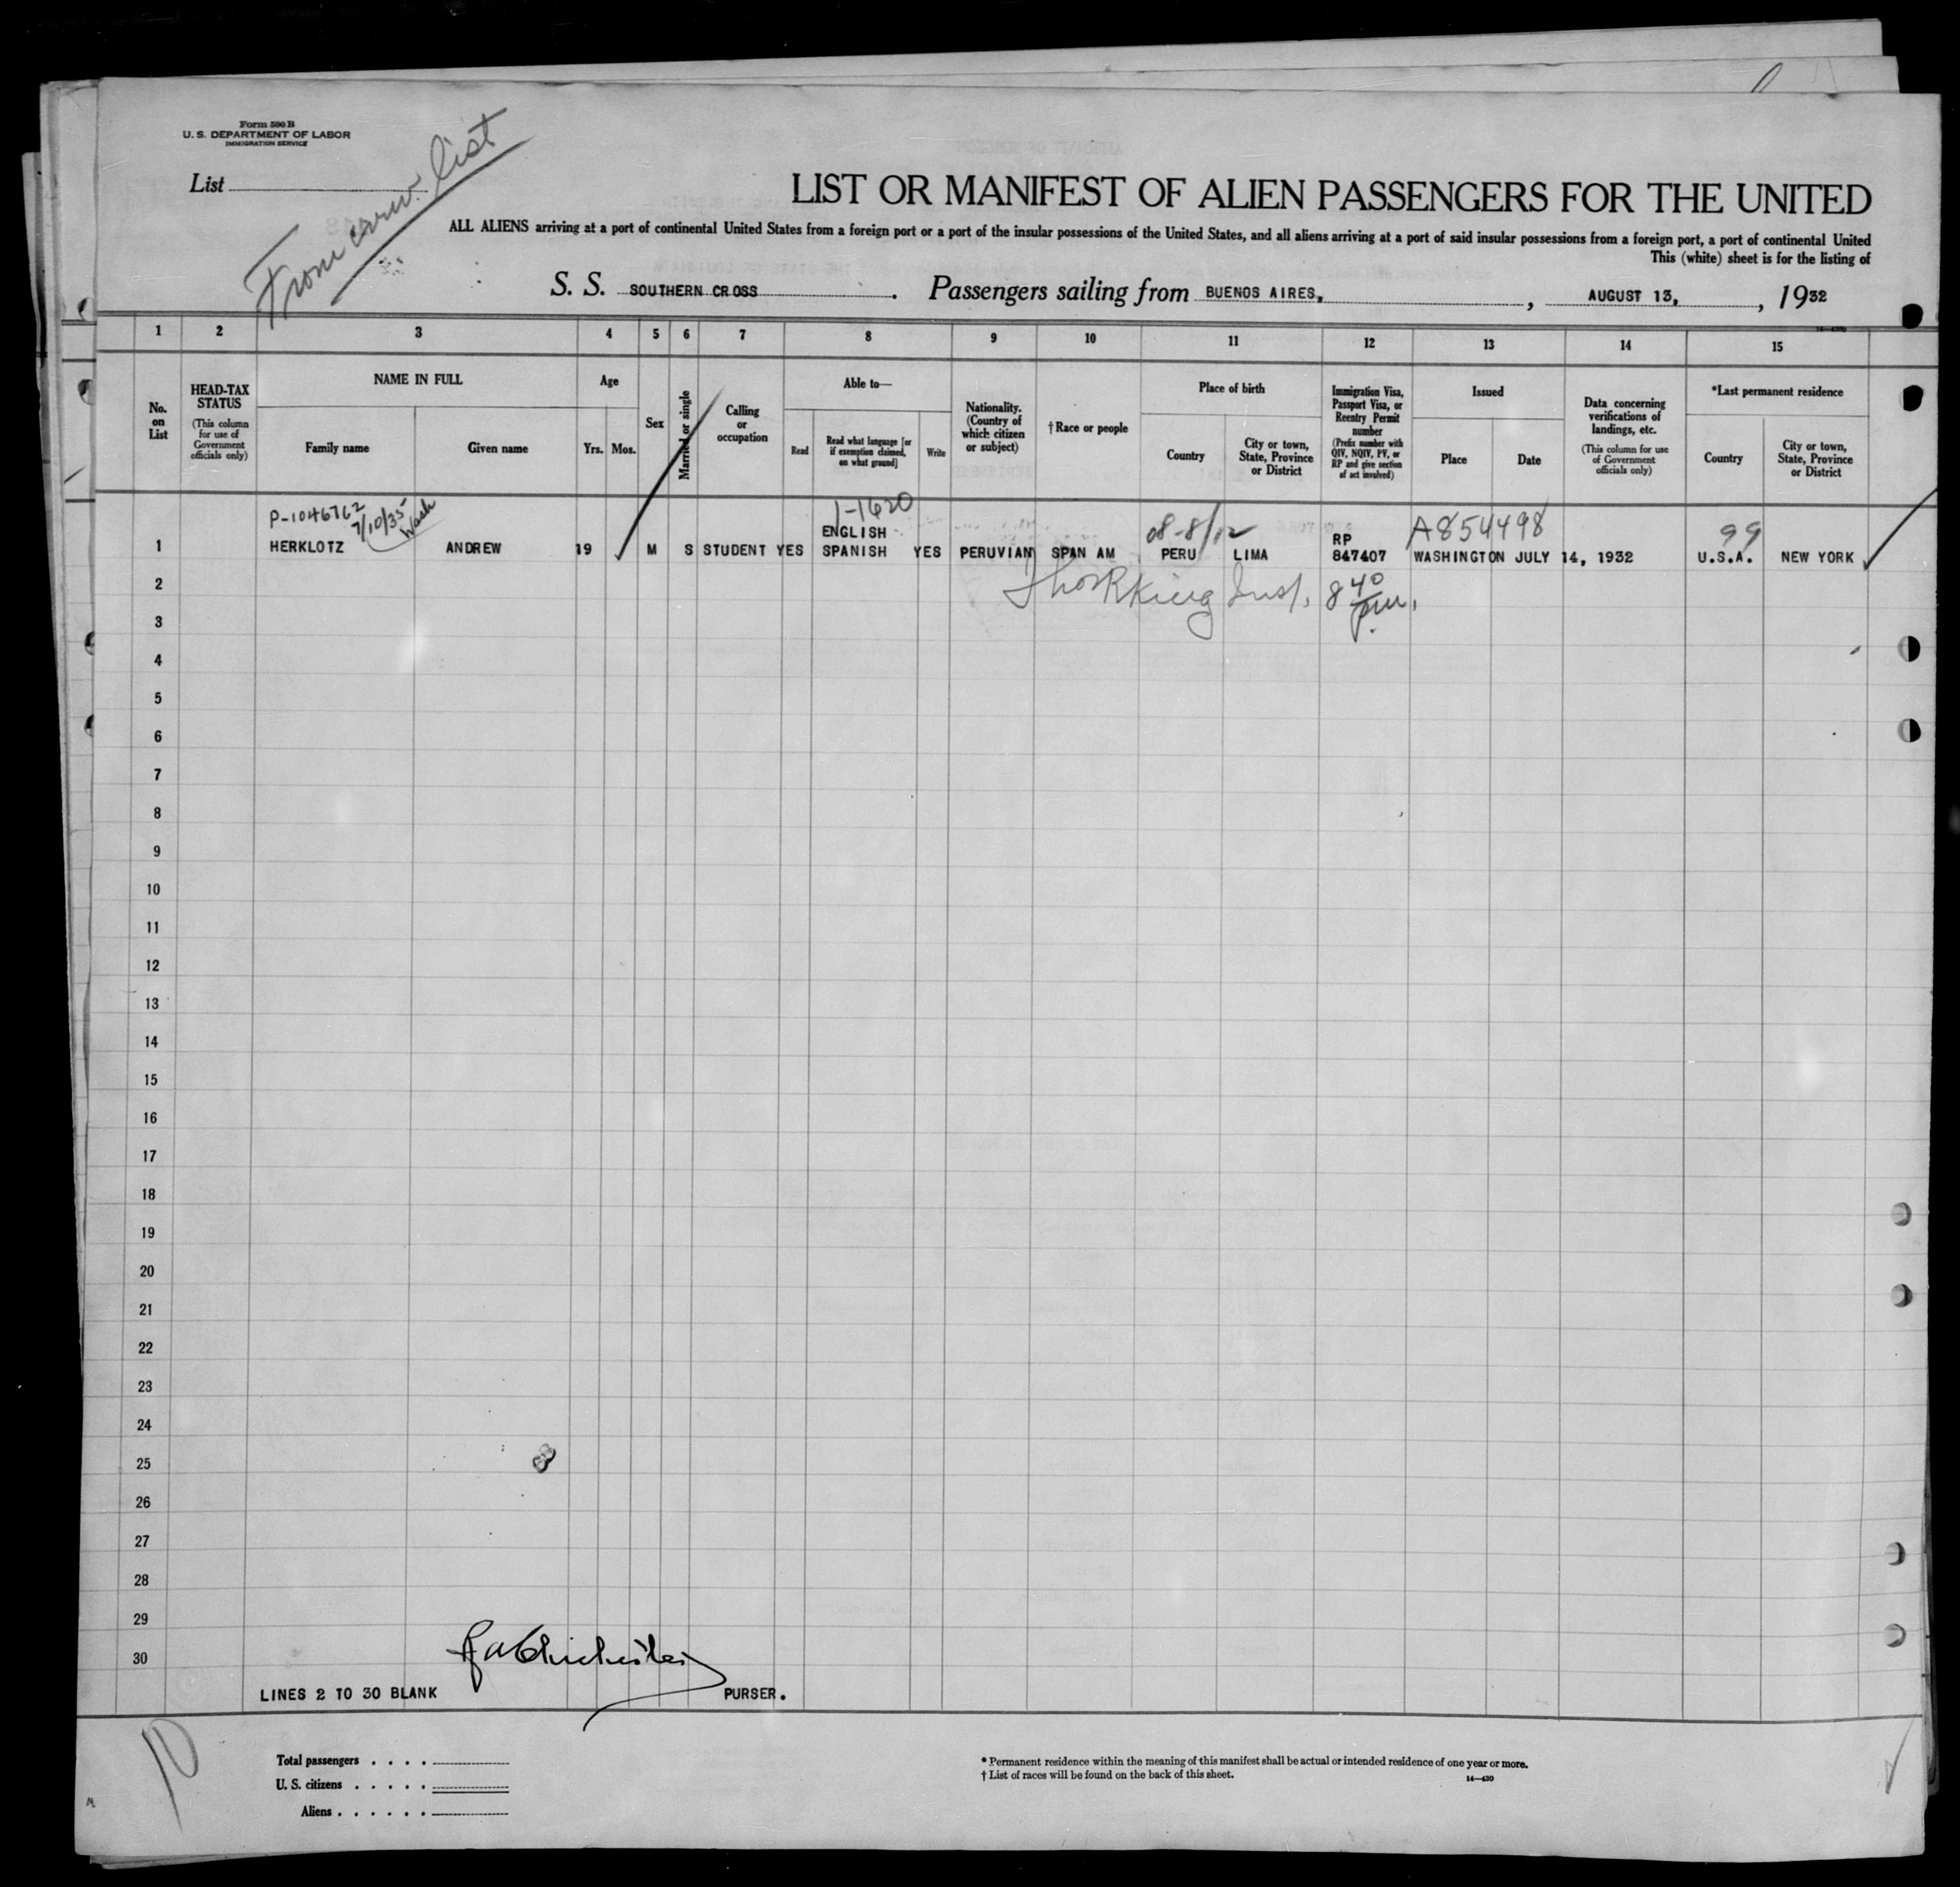 Form 500 B
U. S. DEPARTMENT OF LABOR
IMMIGRATION SERVICE
List
From crew list
LIST OR MANIFEST OF ALIEN PASSENGERS FOR THE UNITED
ALL ALIENS arriving at a port of continental United States from a foreign port or a port of the insular possessions of the United States, and all aliens arriving at a port of said insular possessions from a foreign port, a port of continental United
This (white) sheet is for the listing of
S. S. SOUTHERN CROSS . Passengers sailing from BUENOS AIRES, , AUGUST 13, , 1932
1 2 3 4 5 6 7 8 9 10 11 12 13 14 15
No. on List
HEAD-TAX STATUS
(This column for use of Government officials only)
NAME IN FULL
Family name
Given name
Age
Yrs. Mos.
Sex
Married or single
Calling or occupation
Able to—
Read
Read what language [or if exemption claimed, on what ground]
Write
Nationality. (Country of which citizen or subject)
†Race or people
Place of birth
Country
City or town, State, Province or District
Immigration Visa, Passport Visa, or Reentry Permit number
(Prefix number with QIV, NQIV, PV, or RP and give section of act involved)
Issued
Place
Date
Data concerning verifications of landings, etc.
(This column for use of Government officials only)
*Last permanent residence
Country
City or town, State, Province or District
P-1046762 7/10/35 Wash
1-1620
08-8/12
A854498
99
ENGLISH
RP
1 HERKLOTZ ANDREW 19 M S STUDENT YES SPANISH YES PERUVIAN SPAN AM PERU LIMA 847407 WASHINGTON JULY 14, 1932 U.S.A. NEW YORK
2
Insp. 8 40 pm.
3
4
5
6
7
8
9
10
11
12
13
14
15
16
17
18
19
20
21
22
23
24
25
26
27
28
29
30
LINES 2 TO 30 BLANK PURSER.
10
Total passengers . . . .
U. S. citizens . . . . .
Aliens . . . . . .
* Permanent residence within the meaning of this manifest shall be actual or intended residence of one year or more.
† List of races will be found on the back of this sheet.
14—430